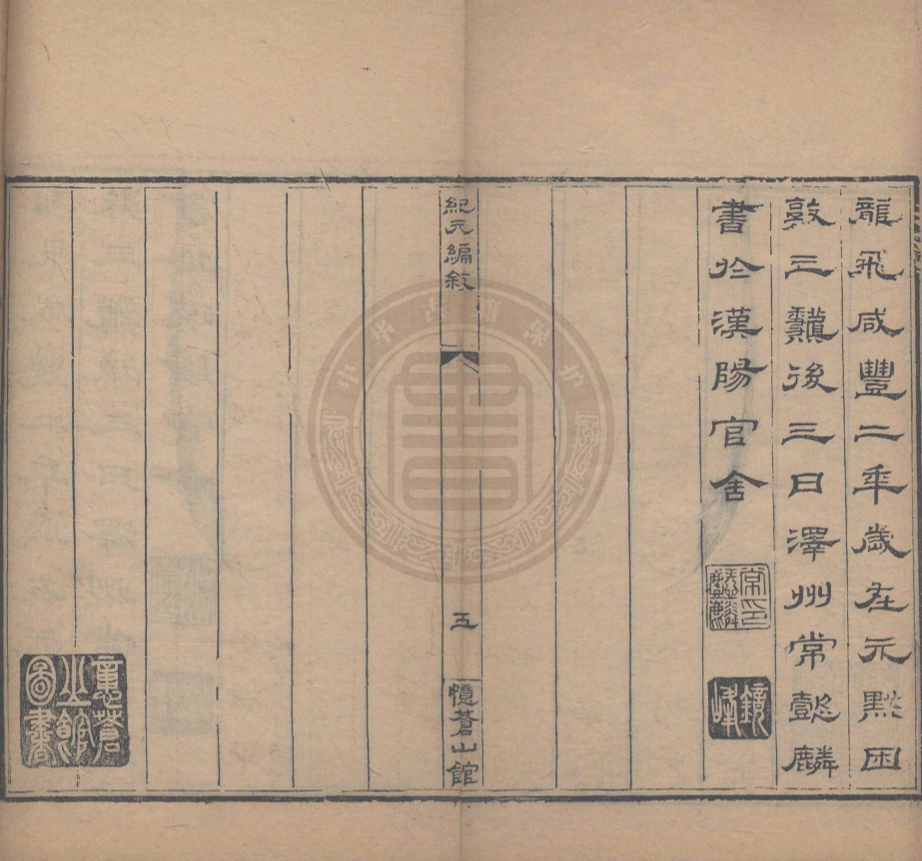 龍飛咸豐二秊歲在元黓困
敦三蠶後三日澤州常懿麟
書於漢陽官舍
常印懿麟
鏡峰
紀元編敘
五
憶蒼山館
意蒼山館圖書